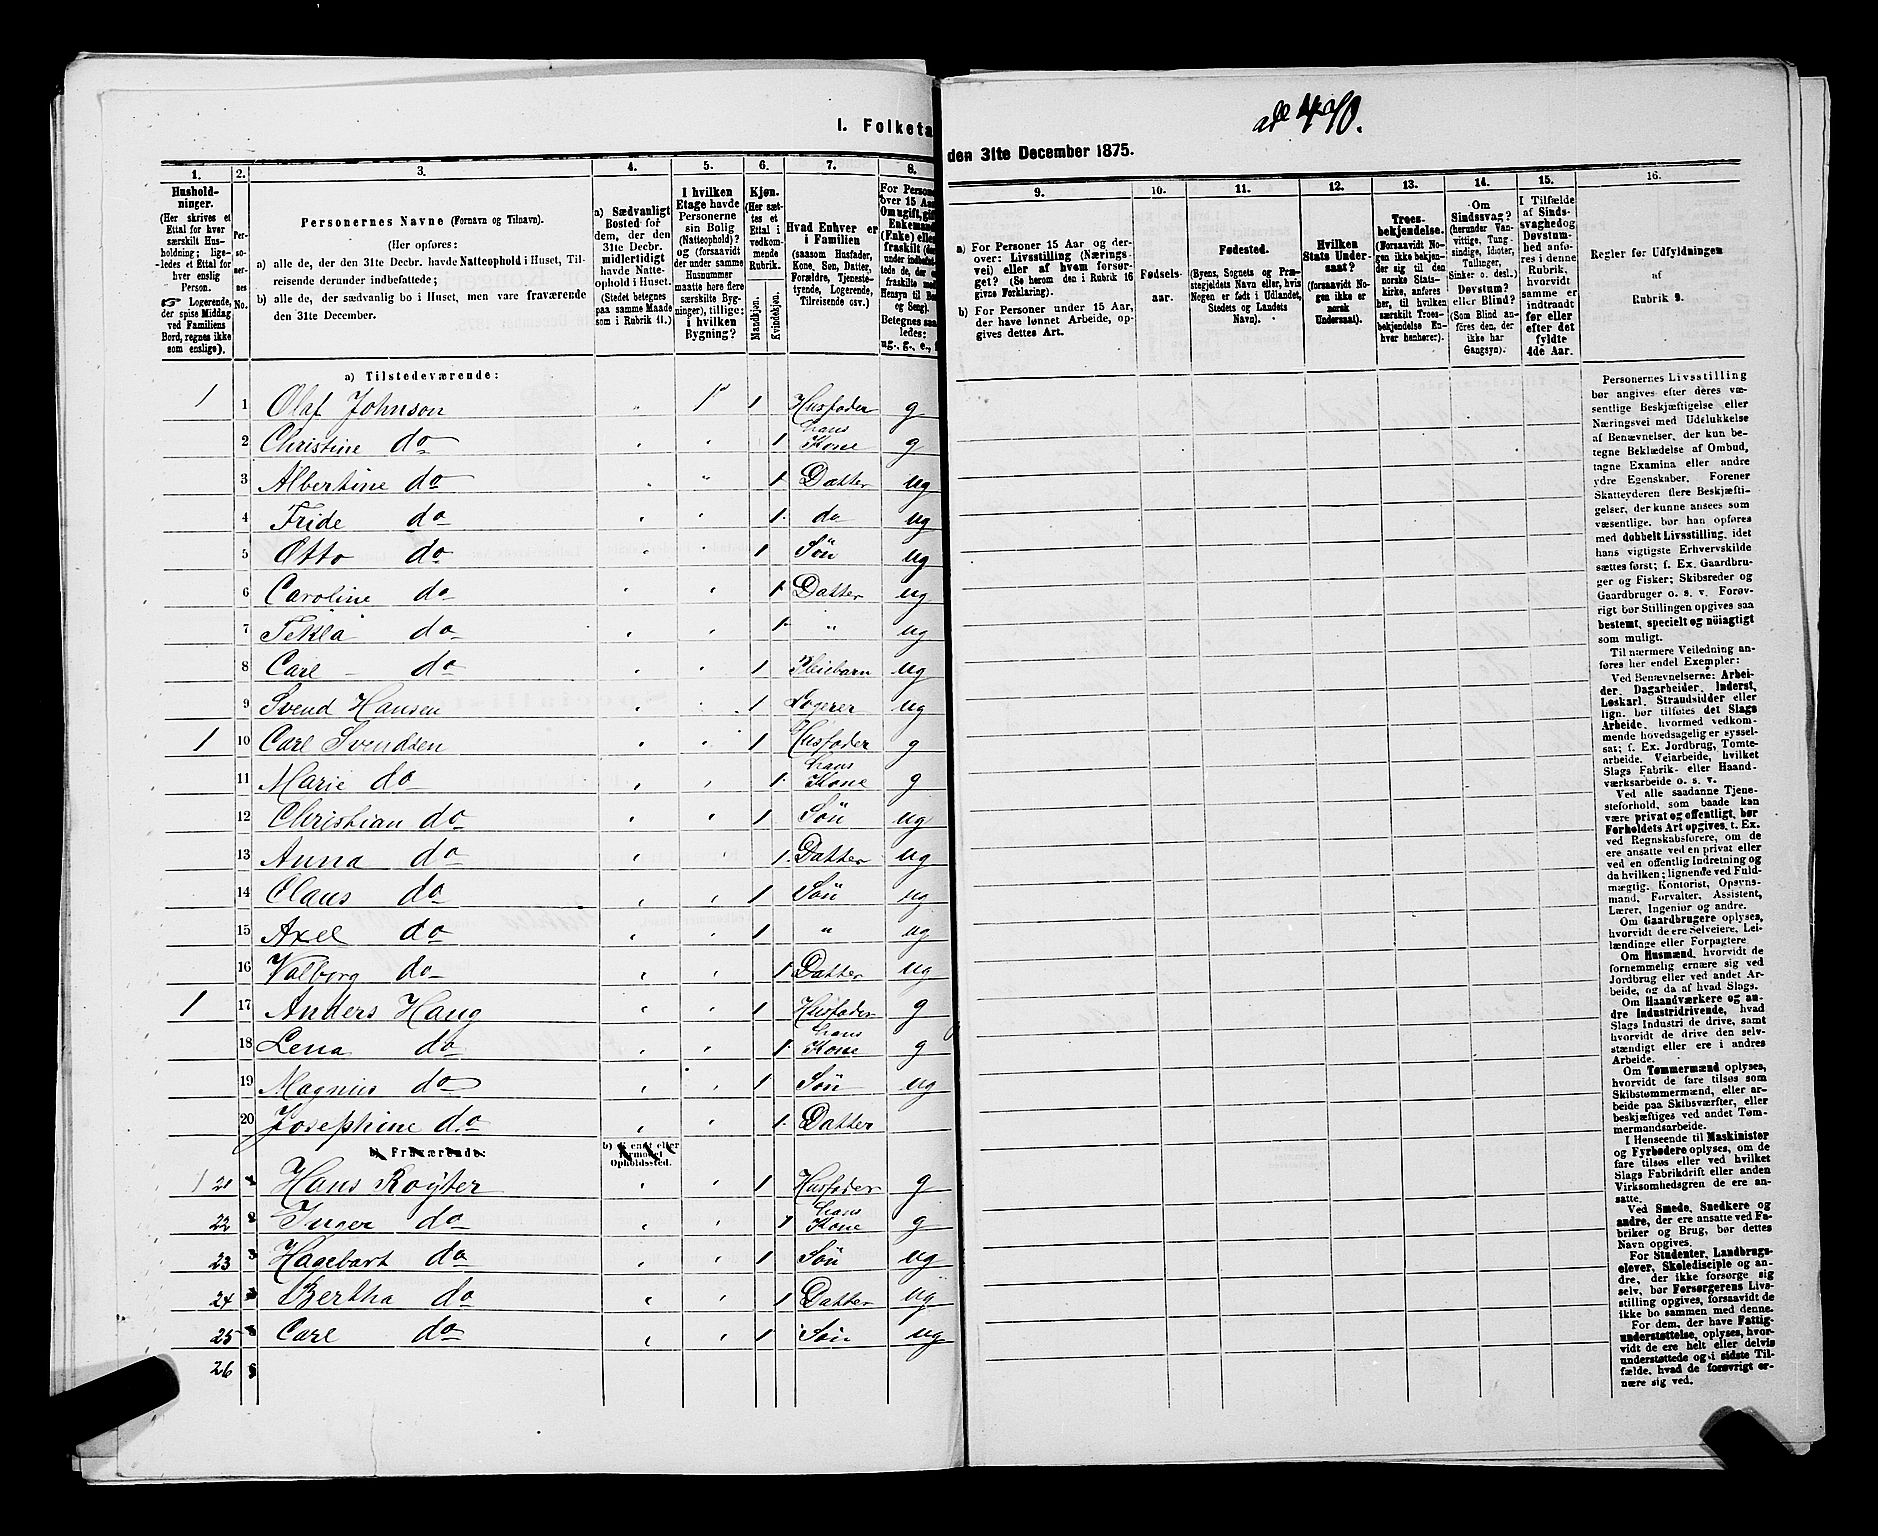 I. Folketæ
den 31te December 1875.
1.
Husholdninger.
(Her skrives et
Ettal for hver
særskilt Husholdning;
ligeledes et Ettal for
hver enslig
Person.
☞ Logerende,
der spise Middag
ved Familiens
Bord, regnes ikke
som enslige).
2.
Personernes
No.
3.
Personernes Navne (Fornavn og Tilnavn).
(Her opføres:
a) alle de, der den 31te Decbr. havde Natteophold i Huset, Tilreisende derunder indbefattede;
b) alle de, der sædvanlig bo i Huset, men vare fraværende
den 31te December.
4.
a) Sædvanligt
Bosted for
dem, der den
31te Decbr.
midlertidigt
havde Natteophold i Huset.
(Stedet betegnes
paa samme Maade
som i Rubrik 11.)
5.
I hvilken
Etage havde
Personerne
sin Bolig
(Natteophold)?
og (forsaavidt
der under samme
Husnummer
maatte høre flere
særskilte Bygninger), tillige:
i hvilken
Bygning?
6.
Kjøn.
(Her sættes et
Ettal i
vedkommende
Rubrik.
Mandkjøn.
Kvindekjøn.
7.
Hvad Enhver er
i Familien
(saasom Husfader,
Kone, Søn, Datter,
Forældre, Tjenestetyende, Logerende,
Tilreisende osv.)
8.
For Persone
over 15 Aar
Om ugift, gift
Enkemand
(Enke) elle
fraskilt
Betegnes saaledes:
ug., g., e.,
9.
a) For Personer 15 Aar og derover: Livsstilling (Næringsvei) eller af hvem forsørget? (Se herom den i Rubrik 16
givne Forklaring).
b) For Personer under 15 Aar,
der have lønnet Arbeide, opgives dettes Art.
10.
Fødselsaar.
11.
Fødested.
(Byens, Sognets og Præstegjeldets Navn eller, hvis
Nogen er født i Udlandet,
Stedets og Landets
Navn).
12.
Hvilken
Stats Undersaat?
(forsaavidt Nogen ikke er
norsk
Undersaat).
13.
Troesbekjendelse.
(Forsaavidt Nogen ikke bekjender sig til den
norske Statskirke, anføres
her, til hvilken
særskilt Troesbekjendelse Enhver henhører).
14.
Om
Sindssvag?
(herunder Vanvittige, Tungsindige, Idioter,
Tullinger,
Sinker o. desl.)
Døvstum?
eller Blind?
(Som Blind anføres den, der
ikke har
Gangsyn).
15.
I Tilfælde
af Sindssvaghed og
Døvstumhed anføres i denne
Rubrik,
hvorvidt
samme er
indtraadt
før eller
efter det
fyldte
4de Aar.
16.
Regler for Udfyldningen
af
Rubrik 9.
a) Tilstedeværende:
1 1 Olaf Johnson " 1 1 Husfader g
2 Christine do " " 1 hans Kone g
3 Albertine do " " 1 Datter ug
4 Fride do " " 1 do ug
5 Otto do " " 1 Søn ug
6 Caroline do " " 1 Datter ug
7 Tekla do " " 1 " ug
8 Carl do " " 1 Pleiebarn ug
9 Svend Hansen " " 1 Logerer ug
1 10 Carl Svendsen " " 1 Husfader g
11 Marie do " " 1 hans Kone g
12 Christian do " " 1 Søn ug
13 Anna do " " 1 Datter ug
14 Claus do " " 1 Søn ug
15 Axel do " " 1 " ug
16 Valborg do " " 1 Datter ug
1 17 Anders Haug " " 1 Husfader g
18 Lena do " " 1 hans Kone g
19 Magnus do " " 1 Søn ug
20 Josephine do " " 1 Datter
b) Fraværende: b) Kjendt eller formodet Opholdssted.
1 21 Hans Røyter " " 1 Husfader g
22 Inger do " " 1 hans Kone g
23 Hagebart do " " 1 Søn ug
24 Bertha do " " 1 Datter ug
25 Carl do " " 1 Søn ug
26
Personernes Livsstilling
bør angives efter deres væsentlige Beskjæftigelse eller
Næringsvei med Udelukkelse
af Benævnelser, der kun betegne Beklædelse af Ombud,
tagne Examina eller andre
ydre Egenskaber. Forener
Skatteyderen flere Beskjæftigelser, der kunne ansees som
væsentlige, bør han opføres
med dobbelt Livsstilling, idet
hans vigtigste Erhvervskilde
sættes først; f. Ex. Gaardbruger og Fisker; Skibsreder og
Gaardbruger o. s. v. Forøvrigt bør Stillingen opgives saa
bestemt, specielt og nøiagtigt
som muligt.
Til nærmere Veiledning anføres her endel Exempler:
Ved Benævnelserne: Arbeider, Dagarbeider, Inderst,
Løskarl, Strandsidder eller
lign. bør tilføies det Slags
Arbeide, hvormed vedkommende hovedsagelig er sysselsat; f. Ex. Jordbrug, Tomtearbeide, Veiarbeide, hvilket
Slags Fabrik- eller Haandværksarbeide o. s. v.
Ved alle saadanne Tjenesteforhold, som baade kan
være privat og offentligt, bør
Forholdets Art opgives, t. Ex.
ved Regnskabsførere, om de
ere ansatte ved en privat eller
ved en offentlig Indretning og
da hvilken; lignende ved Fuldmægtig, Kontorist, Opsynsmand, Forvalter, Assistent,
Lærer, Ingeniør og andre.
Om Gaardbrugere oplyses,
hvorvidt de ere Selveiere, Leilændinge eller Forpagtere.
Om Husmænd, hvorvidt de
fornemmelig ernære sig ved
Jordbrug eller ved andet Arbeide, og da af hvad Slags.
Om Haandværkere og andre Industridrivende, hvad
Slags Industri de drive, samt
hvorvidt de drive den selvstændigt eller ere i andres
Arbeide.
Om Tømmermænd oplyses,
hvorvidt de fare tilsøs som
Skibstømmermænd, eller arbeide paa Skibsværfter, eller
beskjæftiges ved andet Tømmermandsarbeide.
I Henseende til Maskinister
og Fyrbødere oplyses, om de
fare tilsøs eller ved hvilket
Slags Fabrikdrift eller anden
Virksomhedsgren de ere ansatte.
Ved Smede, Snedkere og
andre, der ere ansatte ved Fabriker og Brug, bør dettes
Navn opgives.
For Studenter, Landbrugselever, Skoledisciple og andre, der ikke forsørge sig
selv, bør Forsørgerens Livsstilling opgives, forsaavidt de
ikke bo sammen med denne.
For dem, der have Fattigunderstøttelse, oplyses, hvorvidt de ere helt eller delvis
understøttede og i sidste Tilfælde, hvad de forøvrigt ernære sig ved.